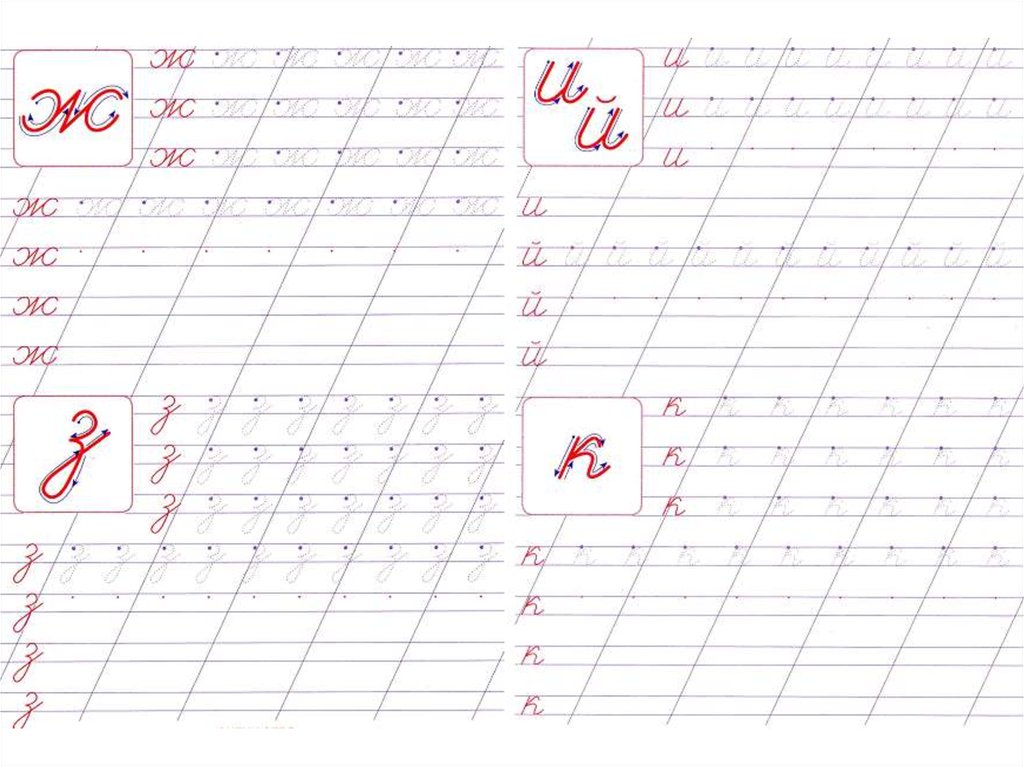 ж
ж ж ж ж ж ж
ж ж ж ж ж ж
ж ж ж ж ж ж
ж ж ж ж ж ж ж ж
ж
ж
ж
з
з з з з з з з з
з з з з з з з з
з з з з з з з з
з з з з з з з з з з з
з
з
з
и
й
и и и и и и и и и
и и и и и и и и и
и
и
й й й й й й й й й й й й
й
й
к
к к к к к к к
к к к к к к к
к к к к к к к
к к к к к к к к к к
к
к
к